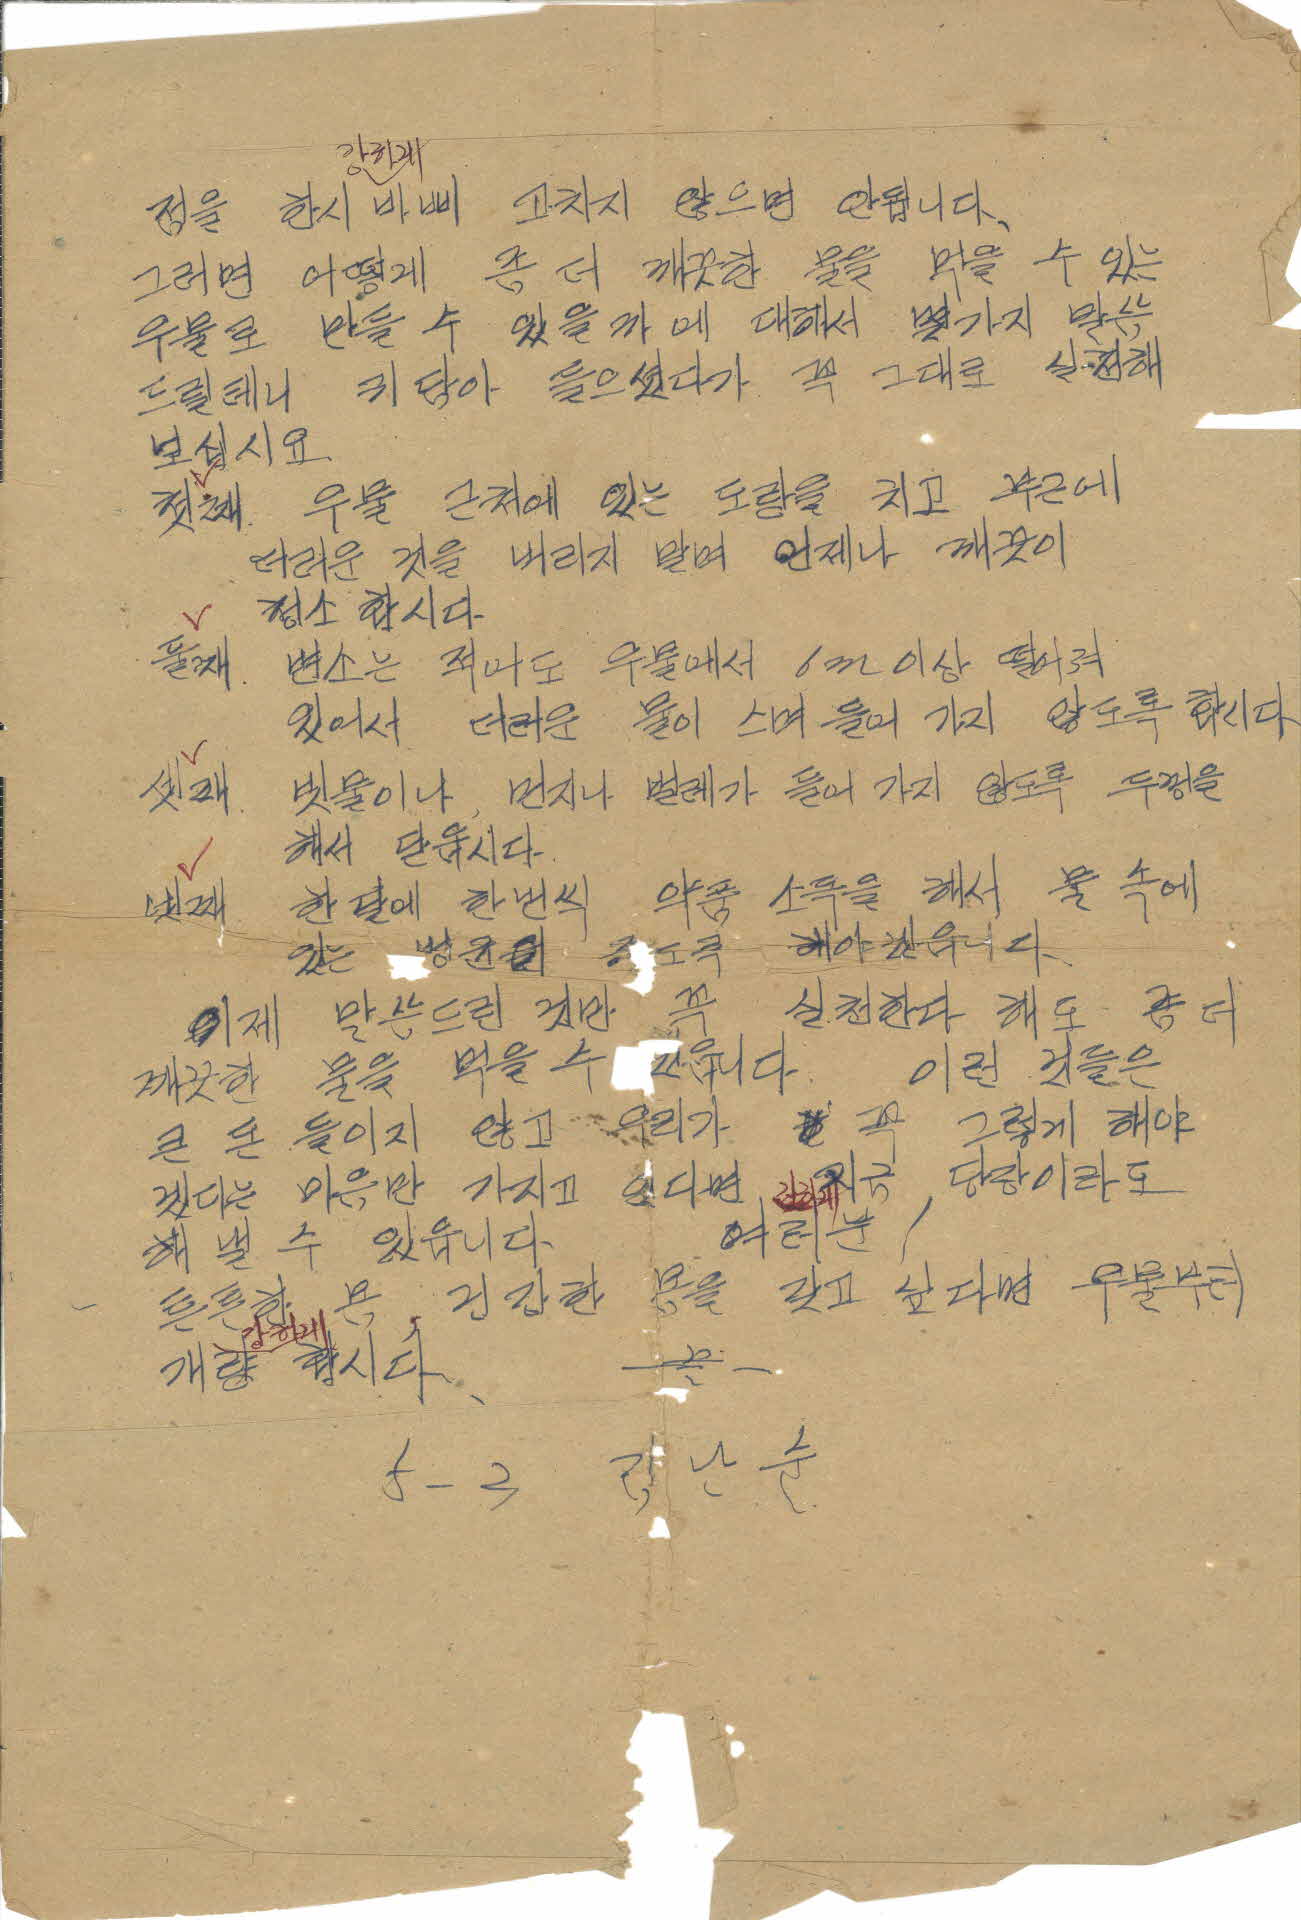 강하게
점을 한시 바삐 고치지 않으면 안됩니다.
그러면 어떻게 좀 더 깨끗한 물을 먹을 수 있는
우물로 만들 수 있을까에 대해서 몇가지 말씀
드릴테니 귀담아 들으셨다가 꼭 그대로 실천해
보십시요.
첫째. 우물 근처에 있는 도랑을 치고 부근에
더러운 것을 버리지 말며 언제나 깨끗이
청소 합시다
둘째. 변소는 적어도 우물에서 6m 이상 떨어져
있어서 더러운 물이 스며 들어 가지 않도록 합시다
셋째. 빗물이나, 먼지나 벌레가 들어 가지 않도록 뚜껑을
해서 닫읍시다.
넷째 한달에 한번씩 약품 소독을 해서 물 속에
있는 병균이 해야겠읍니다.
이제 말씀드린 것만 꼭 실천한다 해도 좀 더
깨끗한 물을 먹을 수 있읍니다. 이런 것들은
큰 돈 들이지 않고 우리가 꼭 그렇게 해야
겠다는 마음만 가지고 있다면 지금 당장이라도
강하게
해 낼 수 있읍니다. 여러분!
튼튼한 몸, 건강한 몸을 갖고 싶다면 우물부터
강하게
개량 합시다. -끝-
5-2 김난순